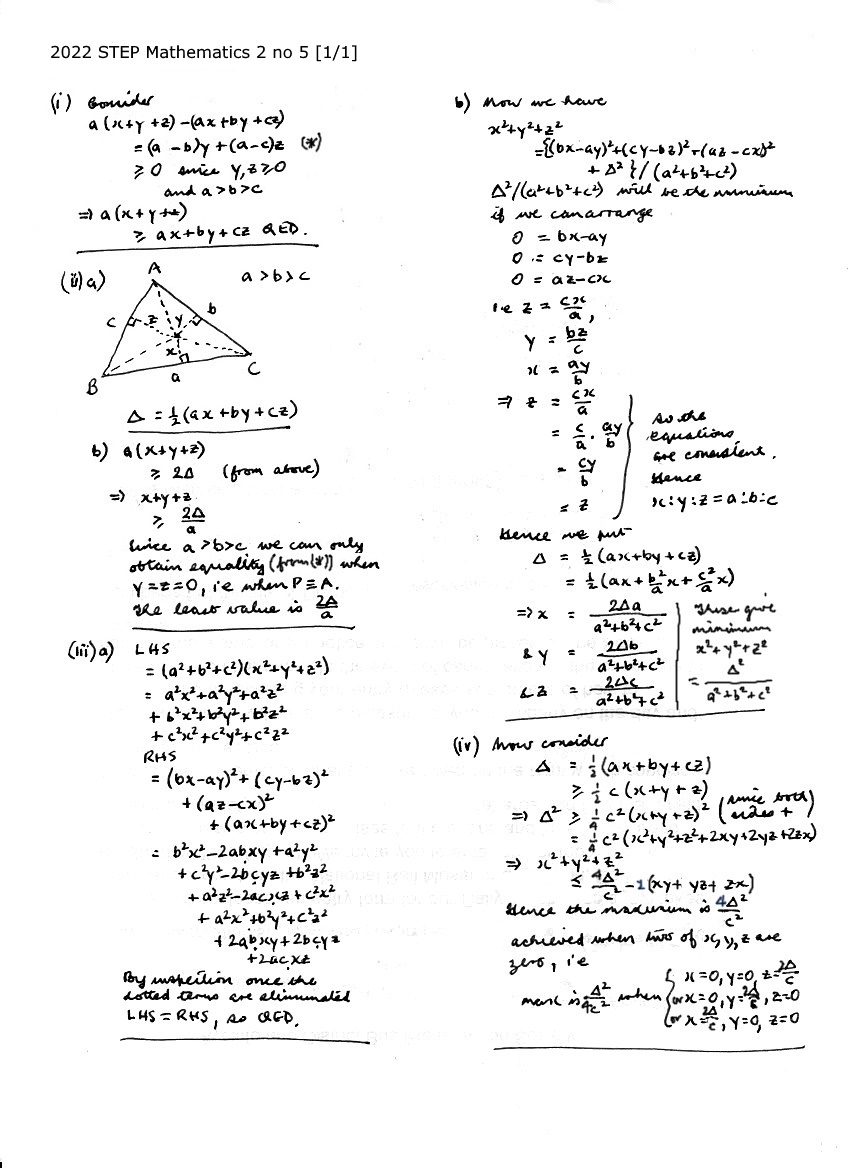 2022 STEP Mathematics 2 no 5 [1/1]
(i) Consider
a(x+y+z)-(ax+by+cz)
=(a-b)y+(a-c)z (*)
≥0 since y,z≥0
and a>b>c
⇒ a(x+y+z)
≥ ax+by+cz QED.
(ii)a) a>b>c
A
c z y b
x
B a C
Δ = ½(ax+by+cz)
b) a(x+y+z)
≥ 2Δ (from above)
⇒ x+y+z
≥ 2Δ/a
Since a>b>c we can only
obtain equality (from (*)) when
y=z=0, i.e when P≡A.
The least value is 2Δ/a
(iii)a) LHS
=(a²+b²+c²)(x²+y²+z²)
= a²x²+a²y²+a²z²
+b²x²+b²y²+b²z²
+c²x²+c²y²+c²z²
RHS
=(bx-ay)²+(cy-bz)²
+(az-cx)²
+(ax+by+cz)²
= b²x²-2abxy+a²y²
+c²y²-2bcyz+b²z²
+a²z²-2acxz+c²x²
+a²x²+b²y²+c²z²
+2abxy+2bcyz
+2acxz
By inspection once the
dotted terms are eliminated
LHS=RHS, so QED.
b) Now we have
x²+y²+z²
={(bx-ay)²+(cy-bz)²+(az-cx)²
+Δ²}/(a²+b²+c²)
Δ²/(a²+b²+c²) will be the minimum
if we can arrange
0 = bx-ay
0 = cy-bz
0 = az-cx
i.e z = cx/a,
y = bz/c
x = ay/b
⇒ z = cx/a
= c/a . ay/b
= cy/b
= z
So the
equations
are consistent.
Hence
x:y:z=a:b:c
Hence we put
Δ = ½(ax+by+cz)
= ½(ax+b²/a x+c²/a x)
⇒ x = 2Δa/(a²+b²+c²)
& y = 2Δb/(a²+b²+c²)
& z = 2Δc/(a²+b²+c²)
These give
minimum
x²+y²+z²
= Δ²/(a²+b²+c²)
(iv) Now consider
Δ = ½(ax+by+cz)
≥ ½ c(x+y+z)
⇒ Δ² ≥ ¼ c²(x+y+z)² (since both sides +)
= ¼ c²(x²+y²+z²+2xy+2yz+2zx)
⇒ x²+y²+z²
≤ 4Δ²/c² -1(xy+yz+zx)
Hence the maximum is 4Δ²/c²
achieved when two of x,y,z are
zero, i.e
max is Δ²/4c² when { x=0, y=0, z=2Δ/c
or x=0, y=2Δ/c, z=0
or x=2Δ/c, y=0, z=0